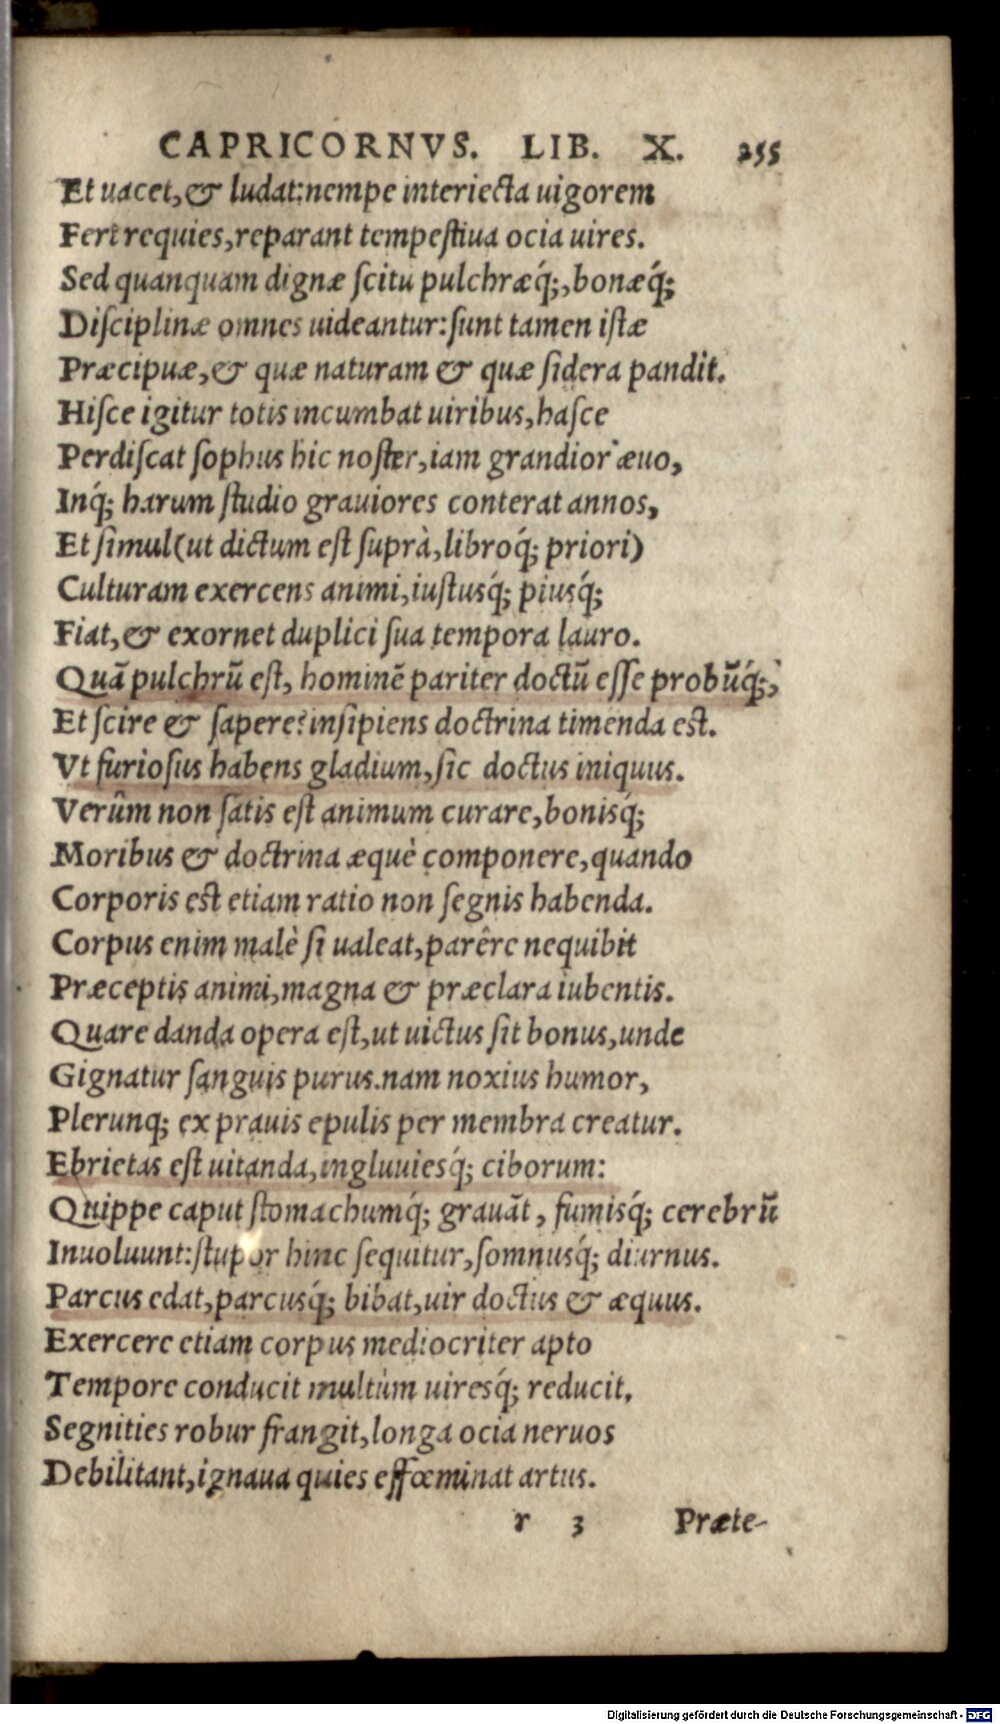 CAPRICORNVS. LIB. X. 255
Et uacet, & ludat: nempe interiecta uigorem
Fert requies, reparant tempestiua ocia uires.
Sed quanquam dignæ scitu pulchræq́;, bonæq́;
Disciplinæ omnes uideantur: sunt tamen istæ
Præcipuæ, & quæ naturam & quæ sidera pandit.
Hisce igitur totis incumbat uiribus, hasce
Perdiscat sophus hic noster, iam grandior æuo,
Inq́; harum studio grauiores conterat annos,
Et simul (ut dictum est suprà, libroq́; priori)
Culturam exercens animi, iustusq́; piusq́;
Fiat, & exornet duplici sua tempora lauro.
Quā pulchrū est, hominē pariter doctū esse probūq́;,
Et scire & sapere? insipiens doctrina timenda est.
Vt furiosus habens gladium, sic doctus iniquus.
Verûm non satis est animum curare, bonisq́;
Moribus & doctrina æquè componere, quando
Corporis est etiam ratio non segnis habenda.
Corpus enim malè si ualeat, parêre nequibit
Præceptis animi, magna & præclara iubentis.
Quare danda opera est, ut uictus sit bonus, unde
Gignatur sanguis purus. nam noxius humor,
Plerunq; ex prauis epulis per membra creatur.
Ebrietas est uitanda, ingluuiesq́; ciborum:
Quippe caput stomachumq́; grauāt, fumisq́; cerebrū
Inuoluunt: stupor hinc sequitur, somnusq́; diurnus.
Parcus edat, parcusq́; bibat, uir doctus & æquus.
Exercere etiam corpus mediocriter apto
Tempore conducit multùm uiresq́; reducit.
Segnities robur frangit, longa ocia neruos
Debilitant, ignaua quies effœminat artus.
r 3 Præte-
Digitalisierung gefördert durch die Deutsche Forschungsgemeinschaft - DFG